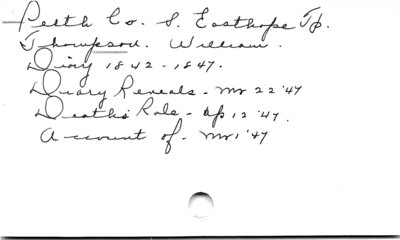 Perth Co. S. Easthope Tp.
Thompson. William.
Diary 1842-1847.
Diary Reveals - Mr 22 '47
Deaths Role - Ap 12 '47.
Account of - Mr 1 '47